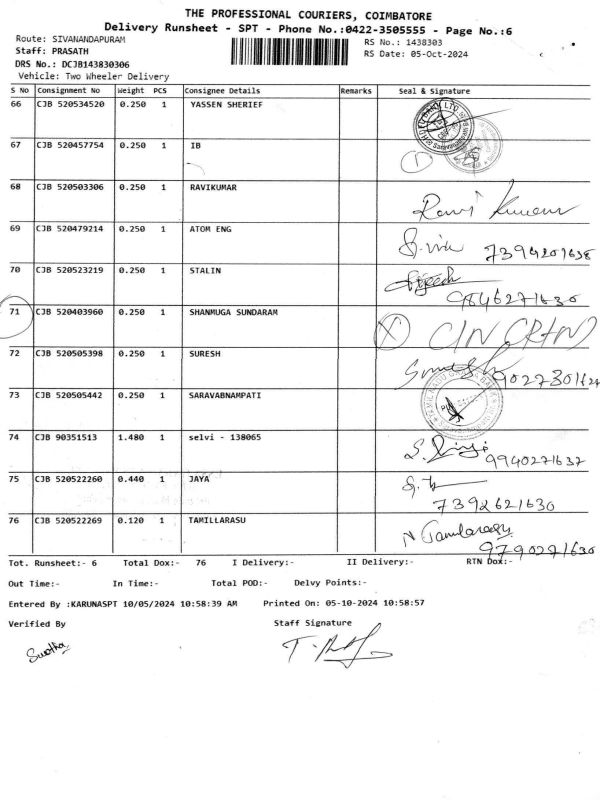 THE PROFESSIONAL COURIERS, COIMBATORE
Delivery Runsheet - SPT - Phone No.:0422-3505555 - Page No.:6
Route: SIVANANDAPURAM
RS No.: 1438303
Staff: PRASATH
RS Date: 05-Oct-2024
DRS No.: DCJB143830306
Vehicle: Two Wheeler Delivery
S No Consignment No Weight PCS Consignee Details Remarks Seal & Signature
66 CJB 520534520 0.250 1 YASSEN SHERIEF
67 CJB 520457754 0.250 1 IB
68 CJB 520503306 0.250 1 RAVIKUMAR Ravi Kumar
69 CJB 520479214 0.250 1 ATOM ENG 7394201638
70 CJB 520523219 0.250 1 STALIN 9846271630
71 CJB 520403960 0.250 1 SHANMUGA SUNDARAM
72 CJB 520505398 0.250 1 SURESH Suresh 9027301624
73 CJB 520505442 0.250 1 SARAVABNAMPATI
74 CJB 90351513 1.480 1 selvi - 138065 9940271637
75 CJB 520522260 0.440 1 JAYA 7392621630
76 CJB 520522269 0.120 1 TAMILLARASU N Tamilarasu 9790271630
Tot. Runsheet:- 6 Total Dox:- 76 I Delivery:- II Delivery:- RTN Dox:-
Out Time:- In Time:- Total POD:- Delvy Points:-
Entered By :KARUNASPT 10/05/2024 10:58:39 AM Printed On: 05-10-2024 10:58:57
Verified By Staff Signature
Swetha